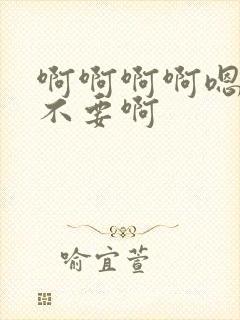 啊啊啊啊嗯
不要啊
喻宜萱